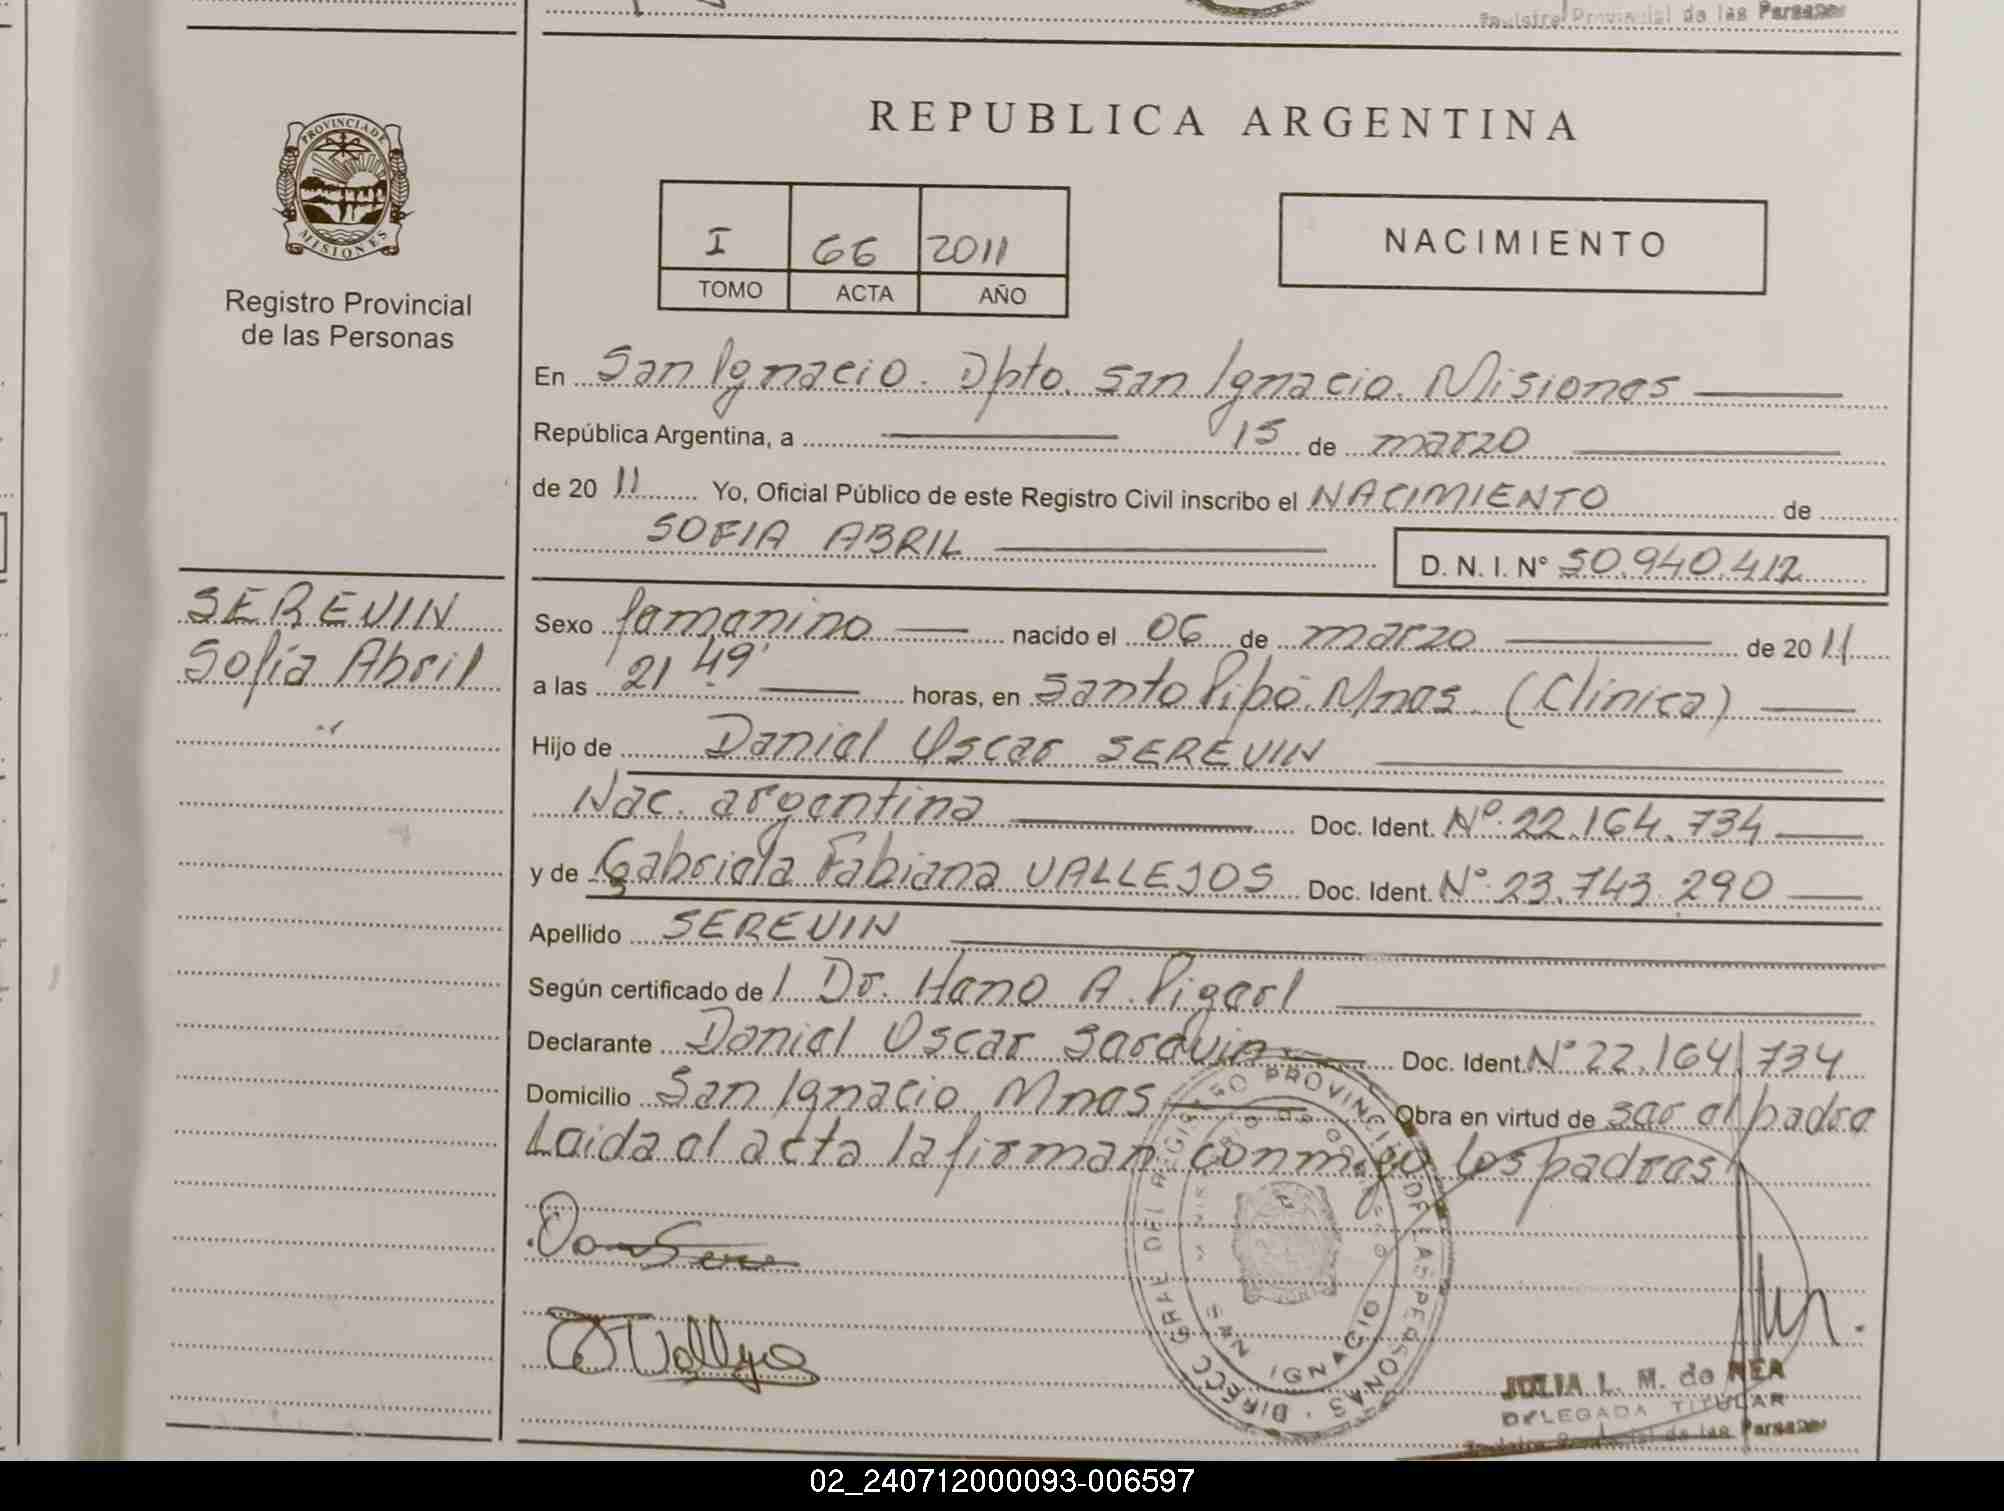 Registro Provincial de las Personas
REPUBLICA ARGENTINA
PROVINCIA DE
MISIONES
Registro Provincial
de las Personas
I 66 2011
TOMO ACTA AÑO
NACIMIENTO
En San Ignacio. Dpto. San Ignacio. Misiones
República Argentina, a 15 de marzo
de 20 11 Yo, Oficial Público de este Registro Civil inscribo el NACIMIENTO de
SOFIA ABRIL D. N. I. Nº 50.940.412
SEREVIN
Sofía Abril
Sexo femenino nacido el 06 de marzo de 20 11
a las 21 49' horas, en Santo Pipó. Mnes. (Clínica)
Hijo de Daniel Oscar SEREVIN
Nac. argentina Doc. Ident. Nº. 22.164.734
y de Gabriela Fabiana VALLEJOS Doc. Ident. Nº. 23.743.290
Apellido SEREVIN
Según certificado de l Dr. A.
Declarante Daniel Oscar Serevin Doc. Ident. Nº 22.164.734
Domicilio San Ignacio Mnes Obra en virtud de ser el padre
Leida el acta la firman conmigo los padres
DIRECC GRAL DEL REGISTRO PROVINCIAL DE LAS PERSONAS
SAN IGNACIO
JULIA L. M. de REA
DELEGADA TITULAR
Registro Provincial de las Personas
02_240712000093-006597